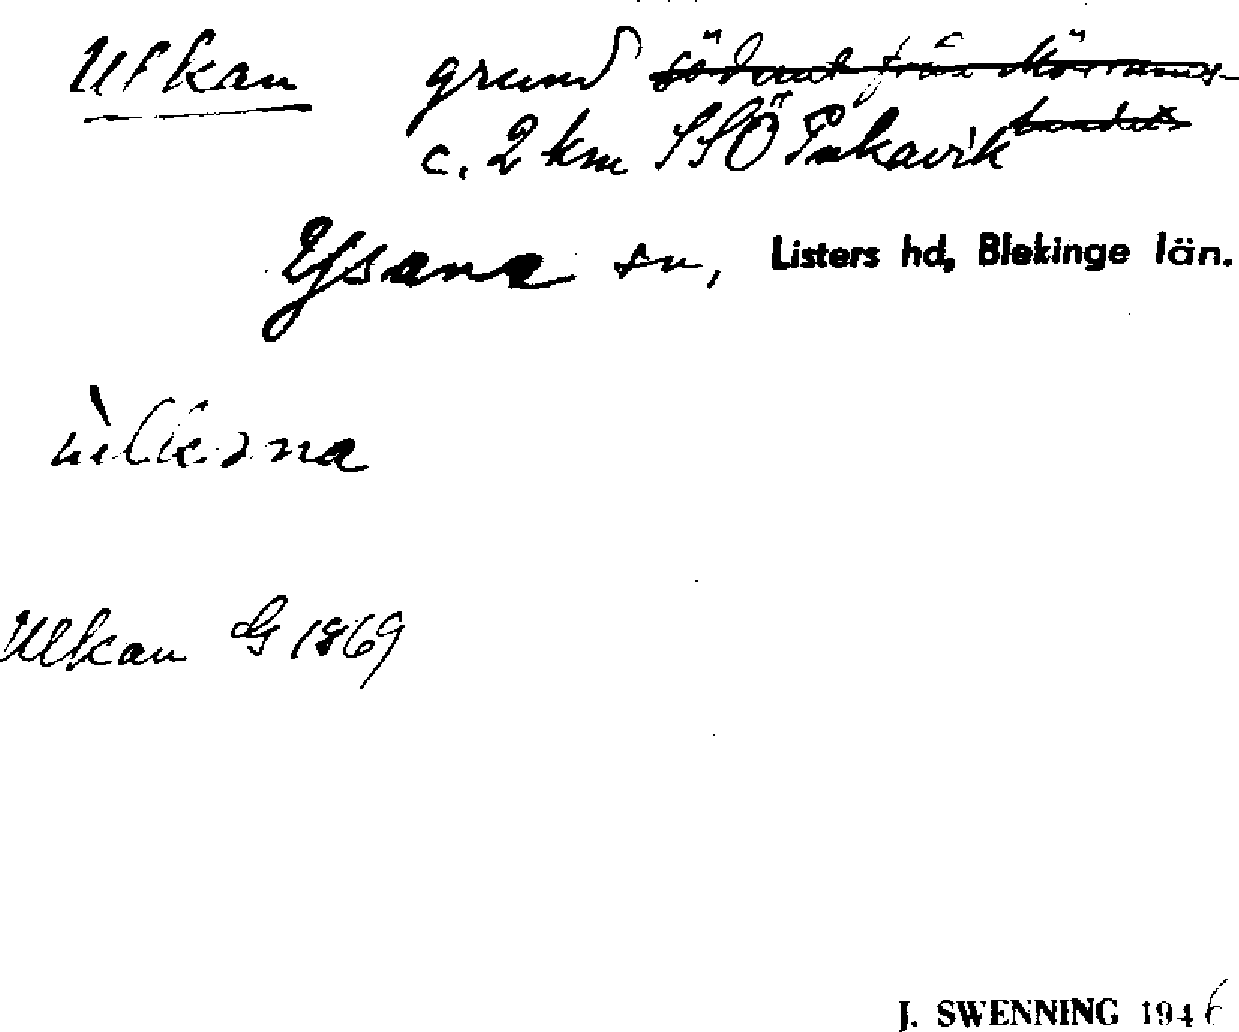 Ulkan grund södaut från Mörrums-
c. 2 km SSÖ Pukavik landet
Ysane sn, Listers hd, Blekinge län.
Ulkan G 1869
J. SWENNING 1946